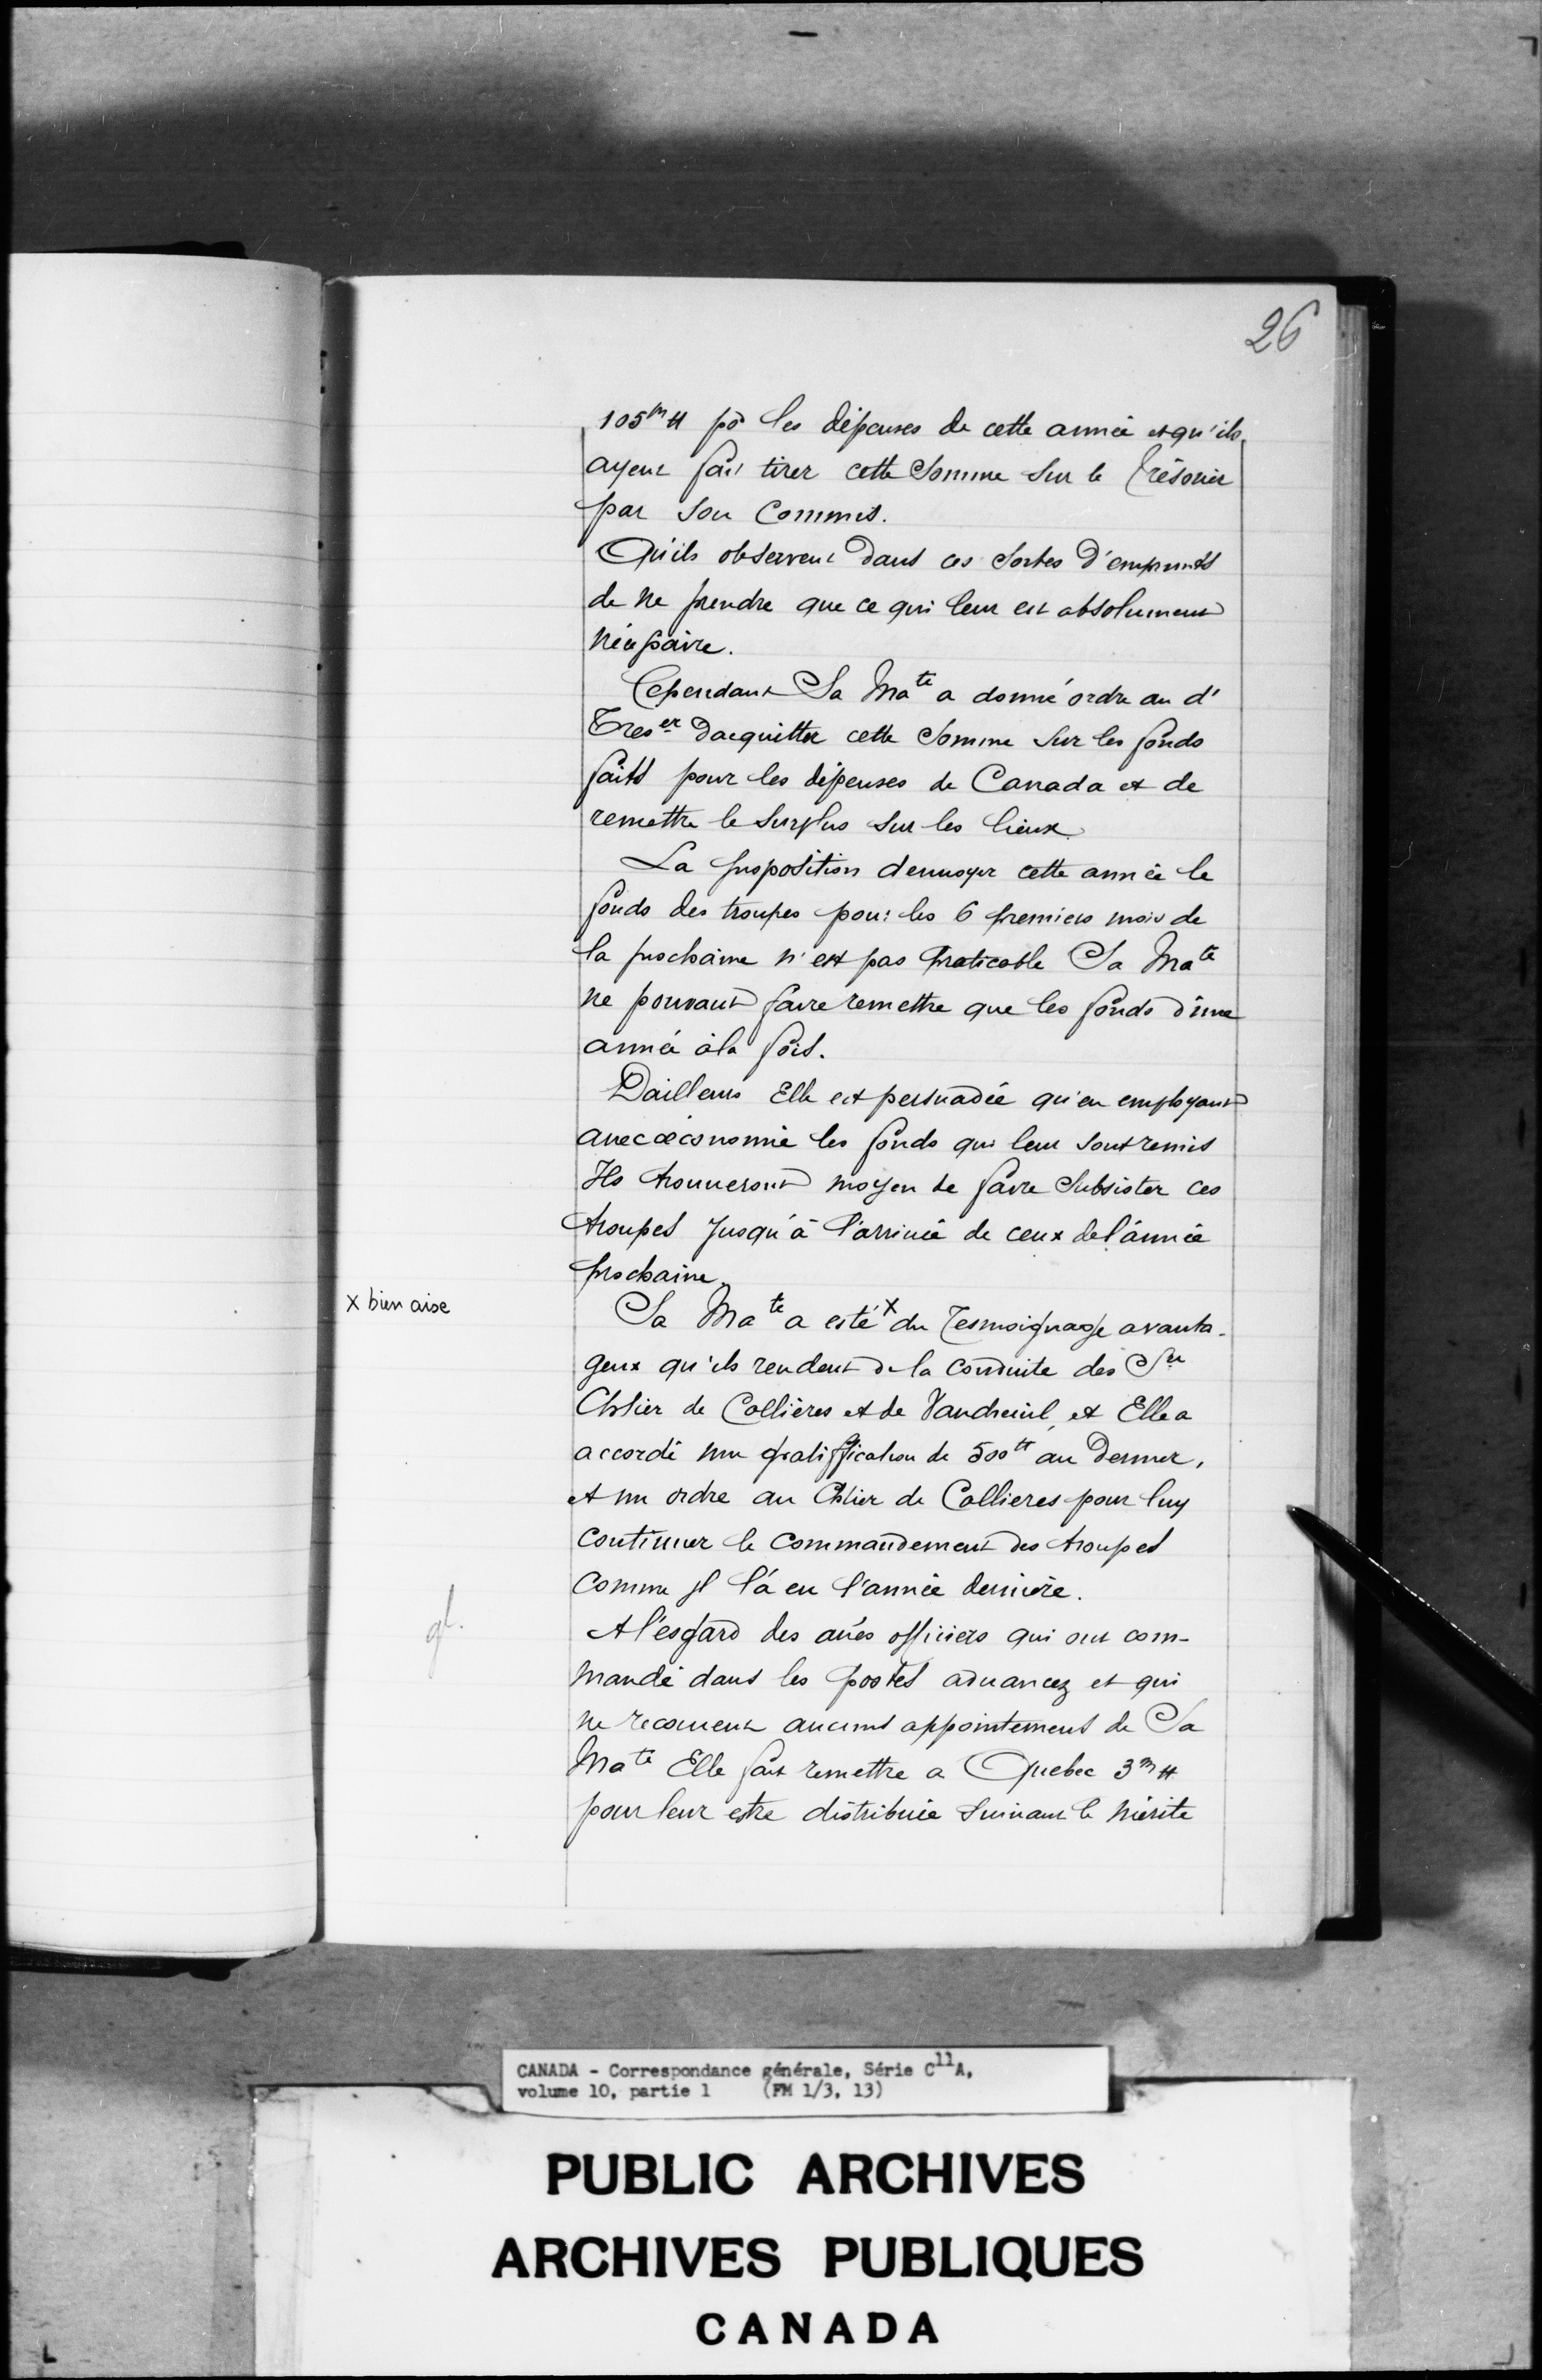 26
105ᵐ ₶ pō les dépenses de cette année et qu'ils
ayent fait tirer cette Somme sur le Trésorier
par son Commis.
Qu'ils observent dans ces sortes d'emprunts
de ne prendre que ce qui leur est absolument
nécessaire.
Cependant Sa Maᵗᵉ a donné ordre au d'
Tresᵉʳ dacquitter cette Somme sur les fonds
faits pour les dépenses de Canada et de
remettre le surplus sur les lieux.
La proposition denuoyer cette année le
fonds des troupes pour les 6 premiers mois de
la prochaine n'est pas praticable Sa Maᵗᵉ
ne pouvant faire remettre que les fonds d'une
année à la fois.
Dailleurs Elle est persuadée qu'en employant
auec œconomie les fonds qui leur sont remis
Ils trouueront moyen de faire subsister ces
troupes jusqu'à l'arriuée de ceux de l'année
prochaine.
x bien aise
Sa Maᵗᵉ a esté x du Tesmoignage avanta-
geux qu'ils rendent de la conduite des Sʳˢ
Chlier de Callières et de Vaudreuil, et Elle a
accordé une gratiffication de 500ᵗᵗ au dernier,
et un ordre au Chlier de Callieres pour luy
continuer le commandement des troupes
comme jl l'a eu l'année dernière.
A l'esgard des aŭes officiers qui ont com-
mandé dans les postes aduancez et qui
ne recoiuent aucuns appointemens de Sa
Maᵗᵉ Elle fait remettre a Quebec 3ᵐ ₶
pour leur estre distribuée suiuant le mérite
CANADA - Correspondance générale, Série C¹¹A,
volume 10, partie 1 (FM 1/3, 13)
PUBLIC ARCHIVES
ARCHIVES PUBLIQUES
CANADA